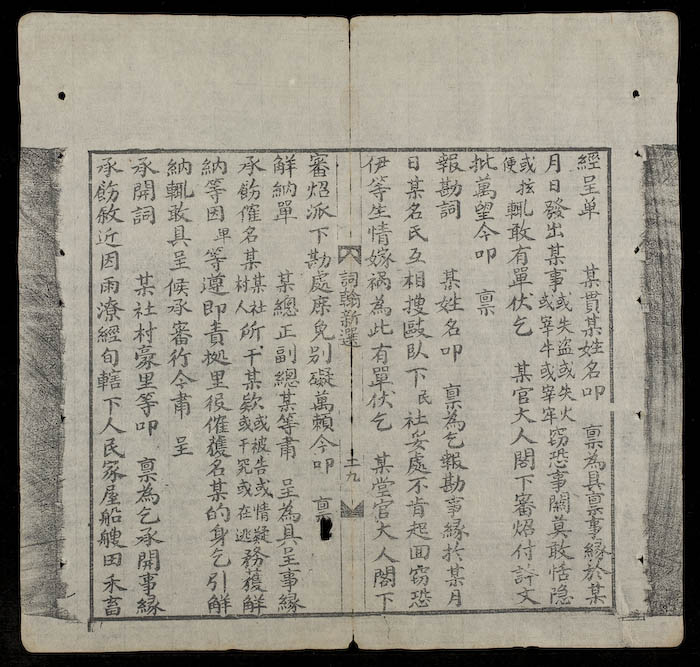 經呈单　某貫某姓名叩　禀為具禀事縁於某
月日發出某事或失盗或失火或宰牛或宰牢窃恐事関莫敢恬隐
或抜便輒敢有單伏乞　某官大人閣下審炤付許文
批萬望今叩　禀
報勘詞　某姓名叩　禀為乞報勘事縁於某月
日某名氏互相搜毆臥下民社妥處不肯起面窃恐
伊等生情嫁禍為此有單伏乞　某堂官大人閣下
詞翰新選　十九
審炤派下勘處庶免别礙萬頼今叩　禀
觧納單　某總正副總某等肅　呈為具呈事縁
承飭催名某某社村人所干某欵或被告或情疑或干究或在逃務獲觧
納等因卑等遵即責拠里役催獲名某的身乞引觧
納輒敢具呈候承審行今肅　呈
承開詞　某社村豪里等叩　禀為乞承開事縁
承飭敘近因雨潦經旬轄下人民家屋船艘田禾畜